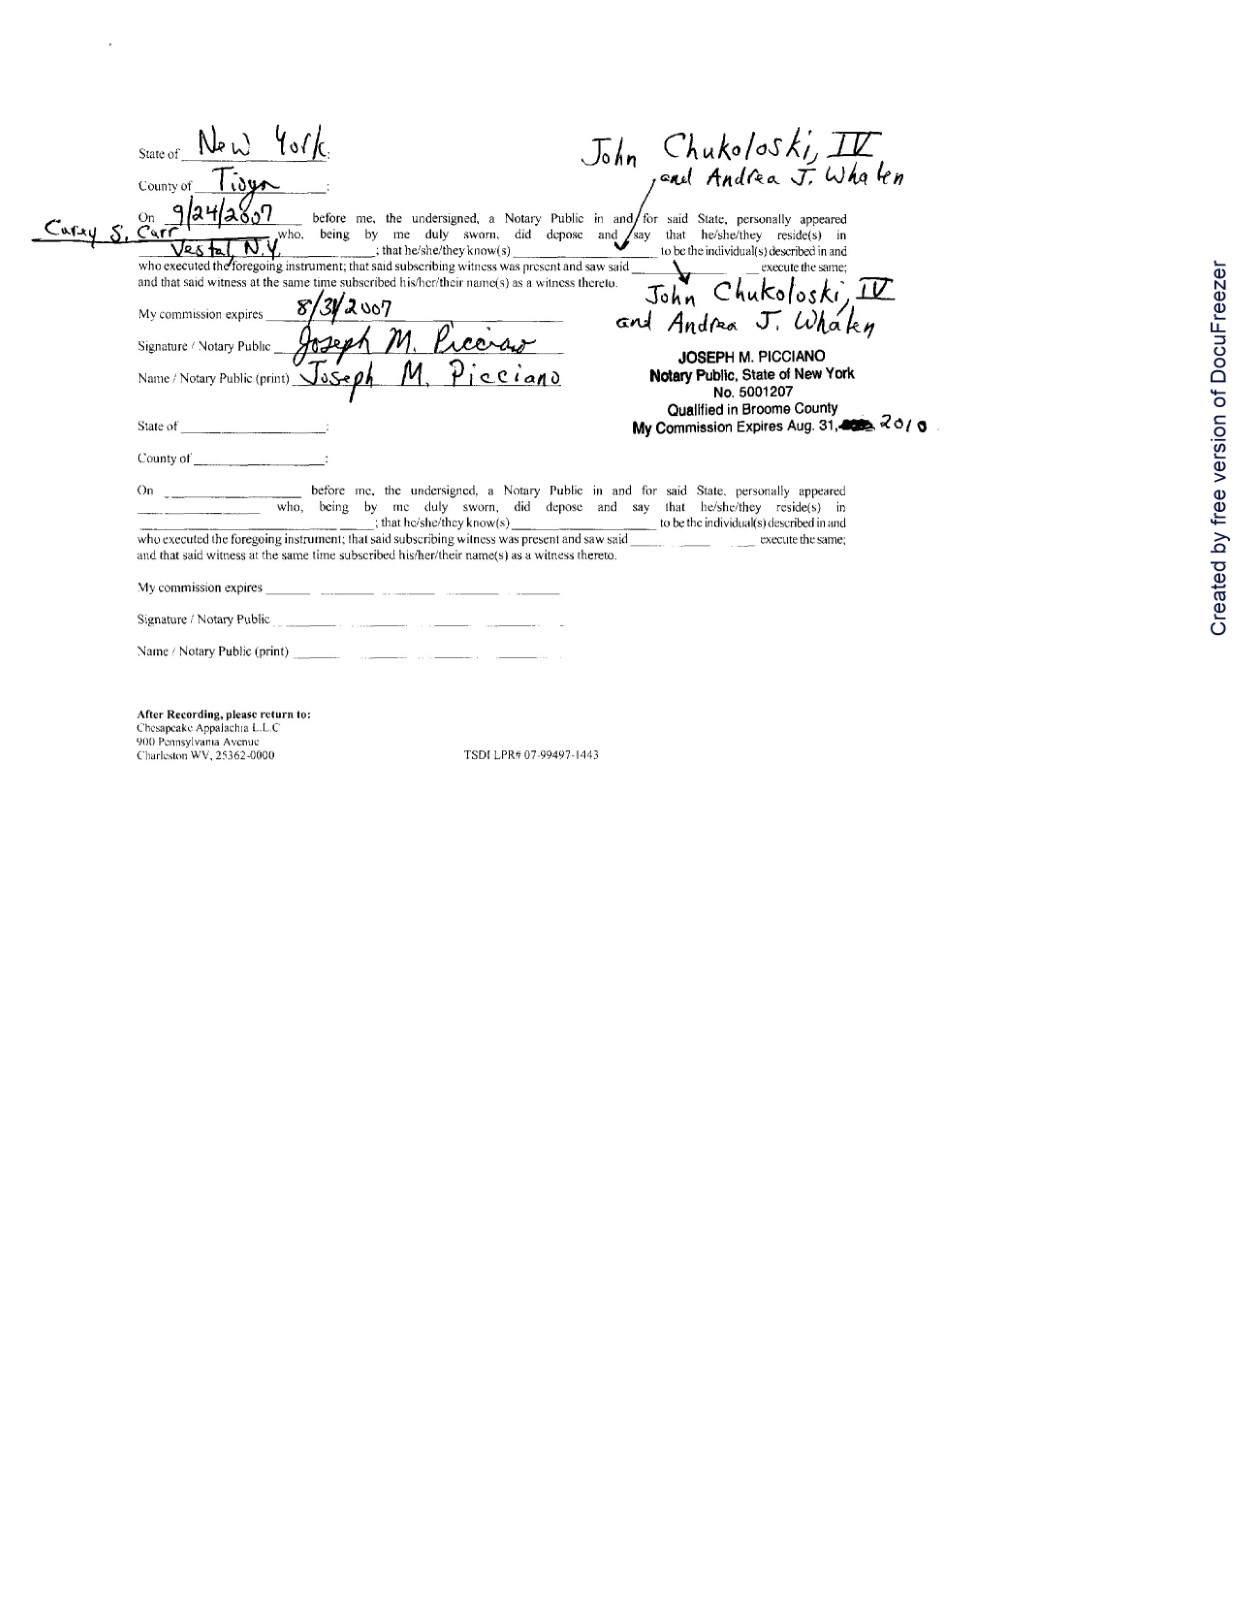 State of New York:
John Chukoloski, IV
and Andrea J. Whalen
County of Tioga :
On 9/24/2007 before me, the undersigned, a Notary Public in and for said State, personally appeared
Carey S. Carr who, being by me duly sworn, did depose and say that he/she/they reside(s) in
Vestal, N.Y. ; that he/she/they know(s) to be the individual(s) described in and
who executed the foregoing instrument; that said subscribing witness was present and saw said execute the same;
and that said witness at the same time subscribed his/her/their name(s) as a witness thereto.
John Chukoloski, IV
and Andrea J. Whalen
My commission expires 8/31/2007
Signature / Notary Public Joseph M. Picciano
Name / Notary Public (print) Joseph M. Picciano
JOSEPH M. PICCIANO
Notary Public, State of New York
No. 5001207
Qualified in Broome County
My Commission Expires Aug. 31, 2010
State of :
County of :
On before me, the undersigned, a Notary Public in and for said State, personally appeared
who, being by me duly sworn, did depose and say that he/she/they reside(s) in
; that he/she/they know(s) to be the individual(s) described in and
who executed the foregoing instrument; that said subscribing witness was present and saw said execute the same;
and that said witness at the same time subscribed his/her/their name(s) as a witness thereto.
My commission expires
Signature / Notary Public
Name / Notary Public (print)
After Recording, please return to:
Chesapeake Appalachia L.L.C
900 Pennsylvania Avenue
Charleston WV, 25362-0000
TSDI LPR# 07-99497-1443
Created by free version of DocuFreezer